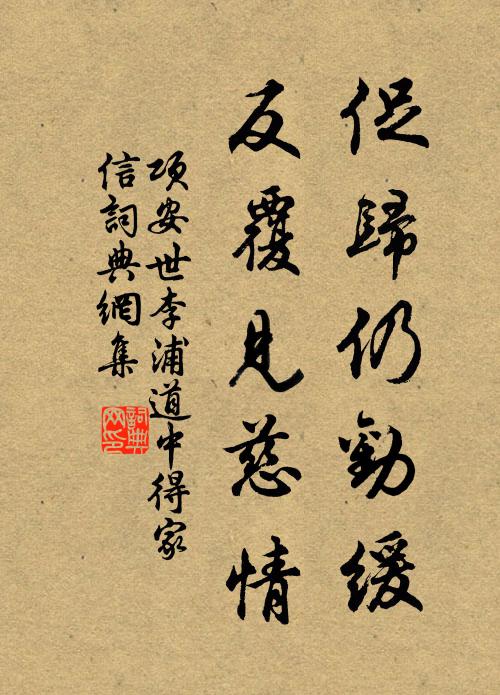 促歸仍勸緩
反覆見慈情
項安世李浦道中得家
信詞典網集
詞典
网印